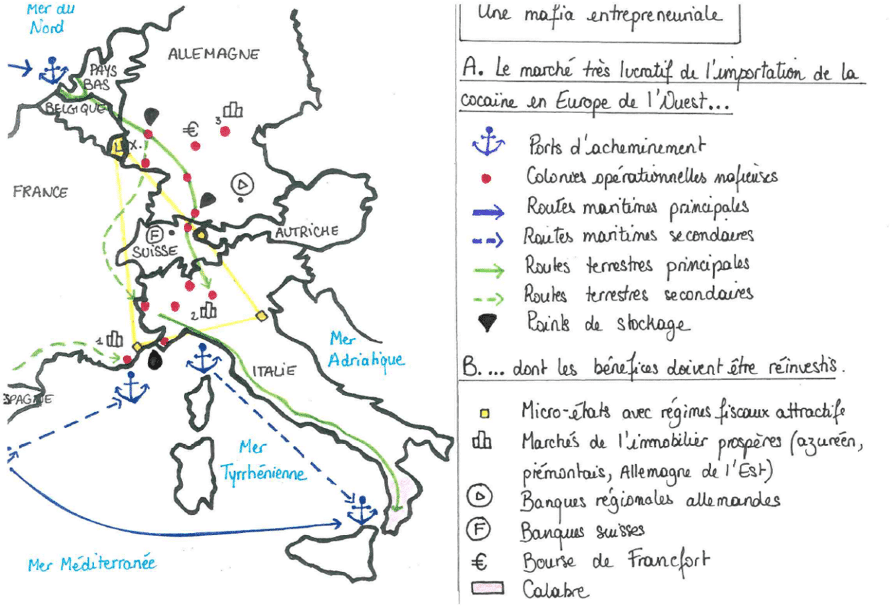 Mer du
Nord
ALLEMAGNE
PAYS
BAS
BELGIQUE
L
X.
3
€
FRANCE
F
SUISSE
AUTRICHE
1
2
Mer
Adriatique
ITALIE
SPAGNE
Mer
Tyrrhénienne
Mer Méditerranée
Une mafia entrepreneuriale
A. Le marché très lucratif de l'importation de la
cocaïne en Europe de l'Ouest...
Ports d'acheminement
Colonies opérationnelles mafieuses
Routes maritimes principales
Routes maritimes secondaires
Routes terrestres principales
Routes terrestres secondaires
Points de stockage
B. ... dont les bénéfices doivent être réinvestis.
Micro-états avec régimes fiscaux attractifs
Marchés de l'immobilier prospères (azuréen,
piémontais, Allemagne de l'Est)
Banques régionales allemandes
F Banques suisses
€ Bourse de Francfort
Calabre